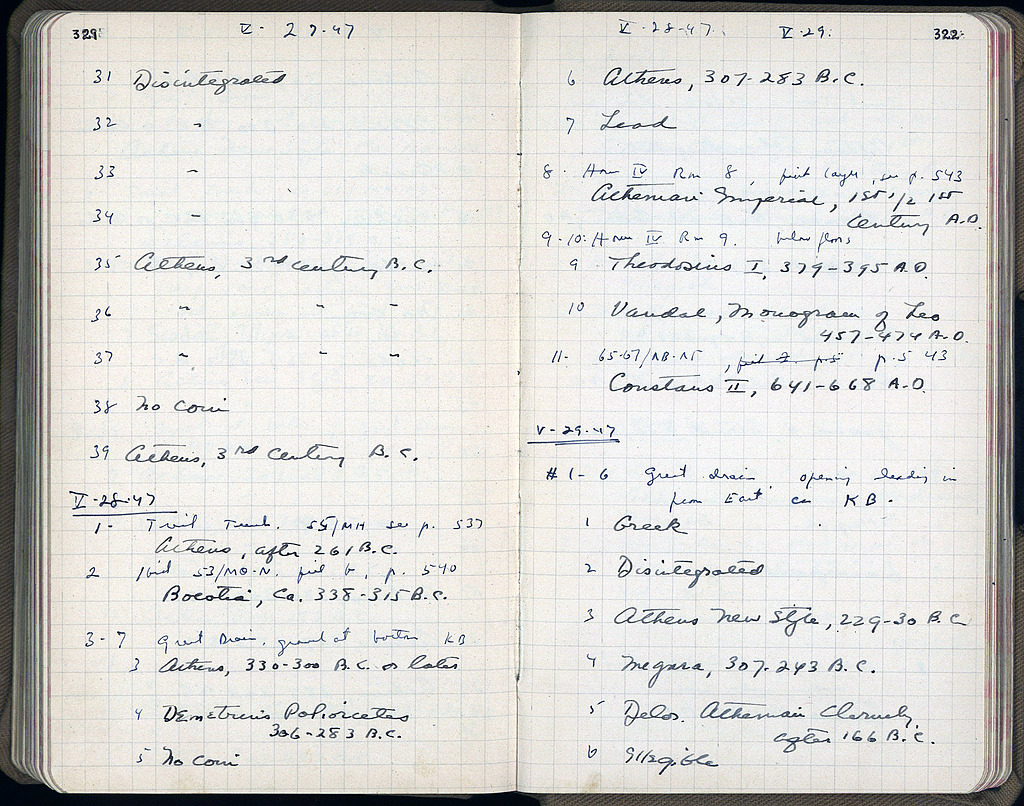 329
V - 27-47
31 Disintegrated
32 "
33 "
34 "
35 Athens, 3rd century B.C.
36 " " "
37 " " "
38 No coin
39 Athens, 3rd century B.C.
V-28-47
1- Trench. 55/MH see p. 537
Athens, after 261 B.C.
2 Ibid 53/MO-N. p. 540
Boeotia, Ca. 338-315 B.C.
3-7 Great Drain, gravel at bottom KB
3 Athens, 330-300 B.C. or later
4 Demetrius Poliorcetes
306-283 B.C.
5 No coin
V-28-47. V-29.
322
6 Athens, 307-283 B.C.
7 Lead
8. House IV Rm 8, layer, see p. 543
Athenian Imperial, 1st 1/2 1st
century A.D.
9-10: House IV Rm 9. below floors
9 Theodosius I, 379-395 A.D.
10 Vandal, Monogram of Leo
457-474 A.D.
11- 65-67/ p. 543
Constans II, 641-668 A.D.
V-29-47
#1-6 Great drain, opening leading in
from East KB.
1 Greek
2 Disintegrated
3 Athens New Style, 229-30 B.C.
4 Megara, 307-243 B.C.
5 Delos. Athenian Cleruchy.
after 166 B.C.
6 Illegible